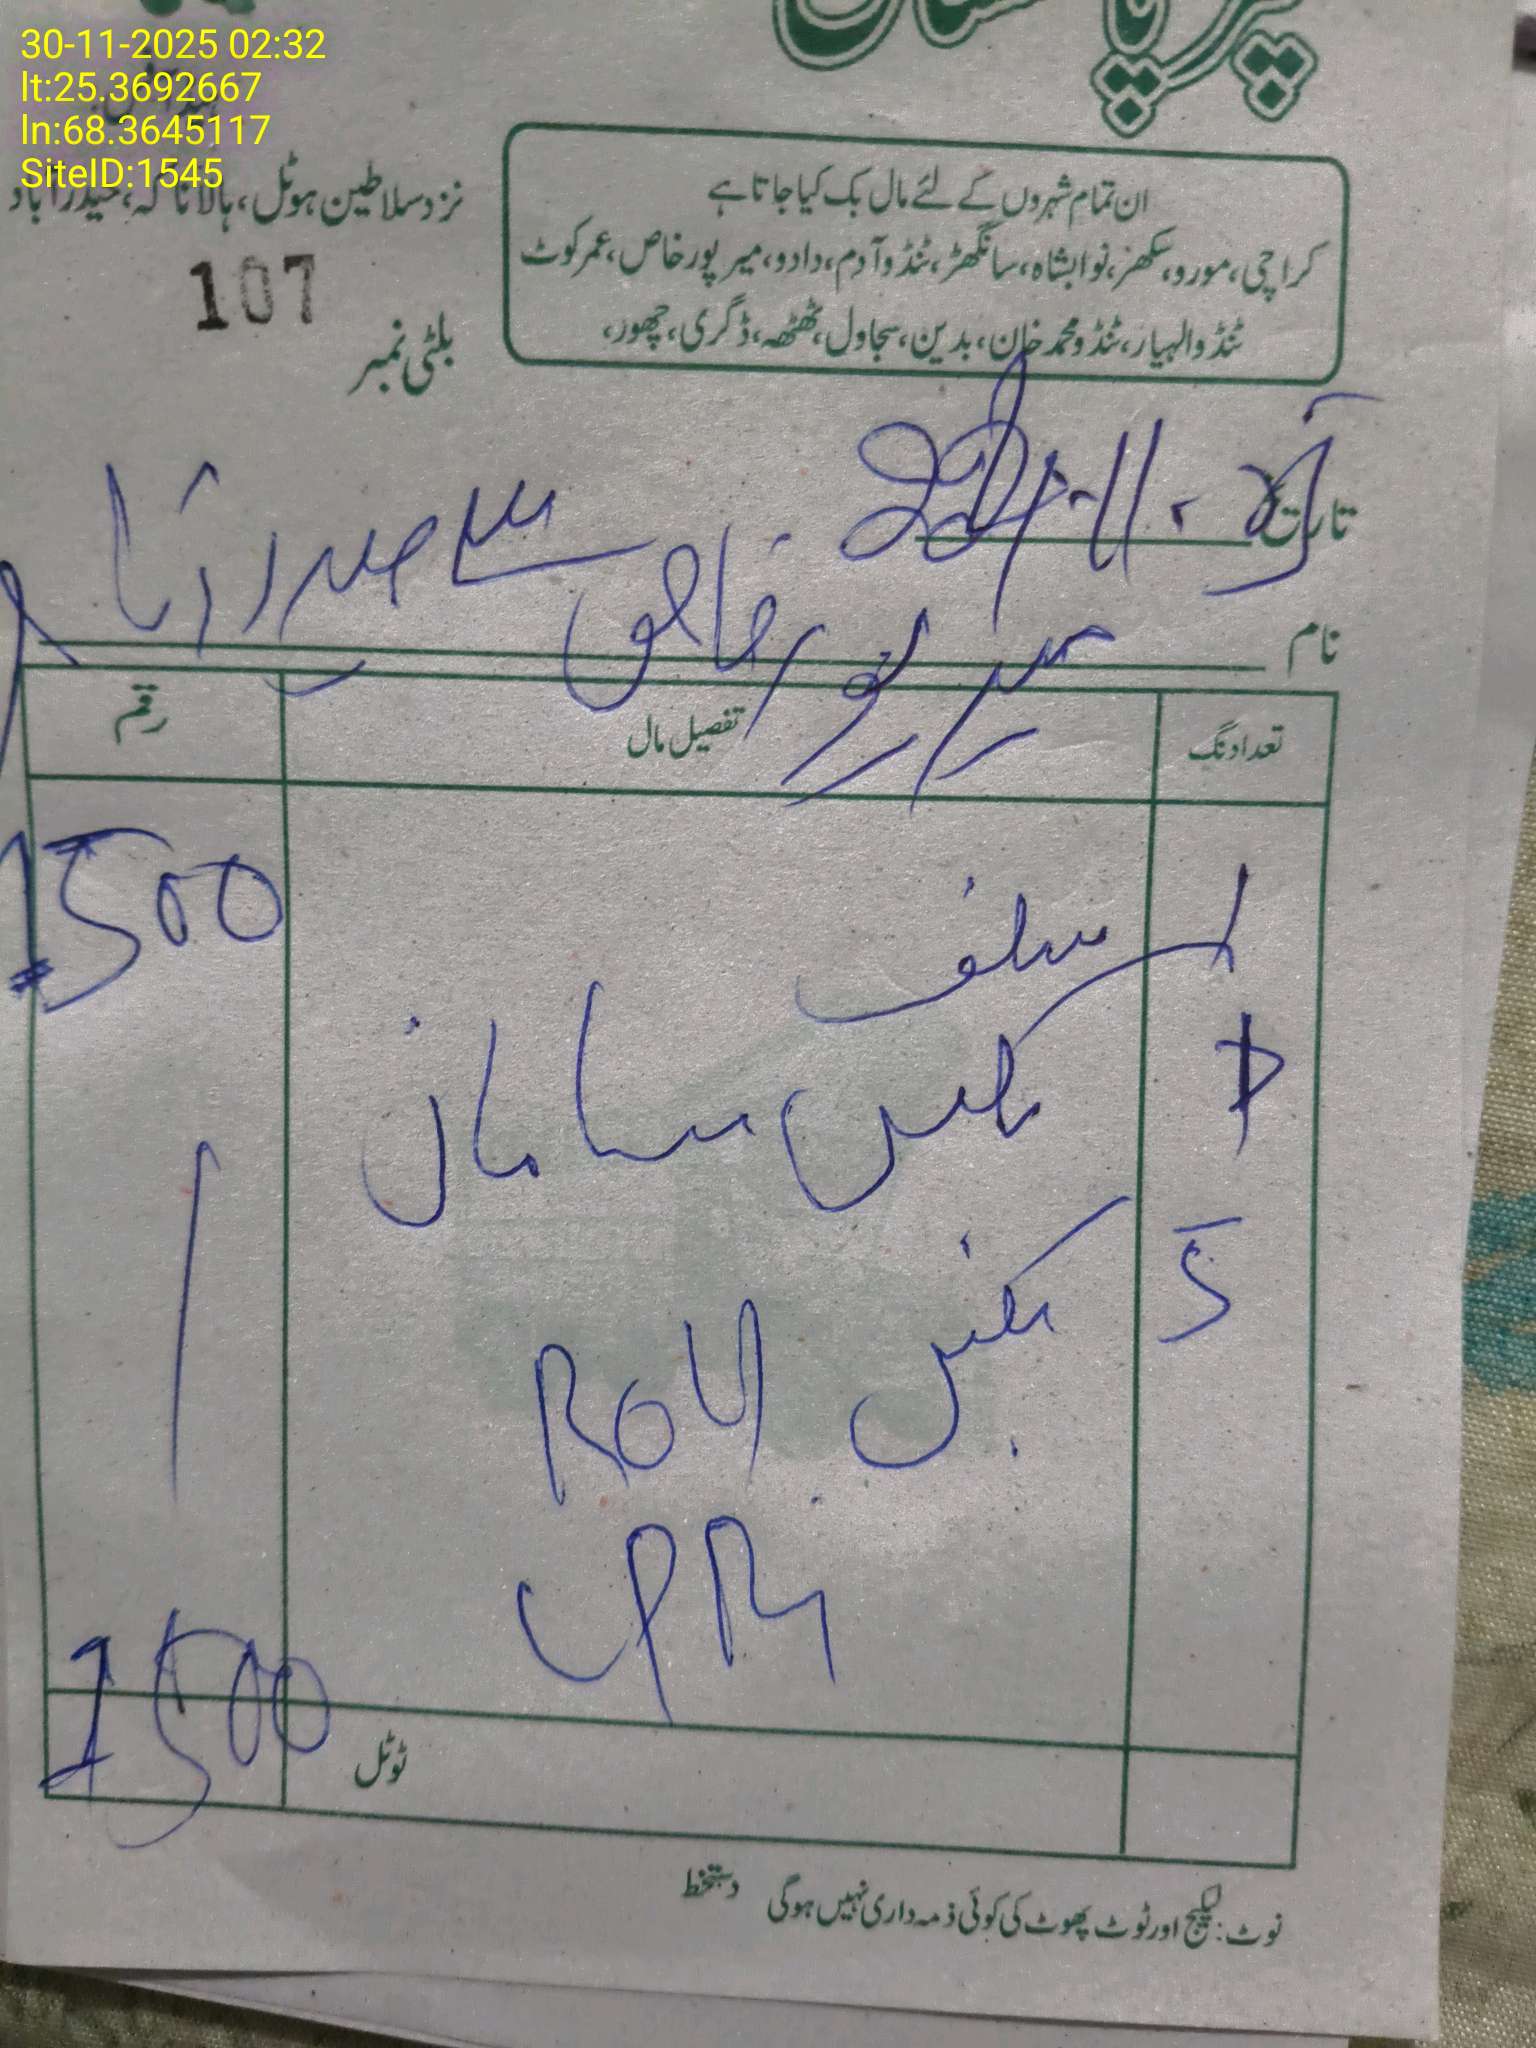 30-11-2025 02:32
lt:25.3692667
ln:68.3645117
SiteID:1545
ان تمام شہروں کے لئے مال بک کیا جاتا ہے
کراچی، مورو، سکھر، نوابشاہ، سانگھڑ، ٹنڈوآدم، دادو، میرپورخاص، عمرکوٹ
ٹنڈوالہیار، ٹنڈومحمدخان، بدین، سجاول، ٹھٹھہ، ڈگری، چھور،
نزد سلاطین ہوٹل، ہالا ناکہ، حیدرآباد
107
بلٹی نمبر
تاریخ
نام میرپورخاص سے حیدرآباد
تعداد نگ تفصیل مال رقم
1 سلف 1500
1 بکس سامان
5 بکس Roll
UPR
ٹوٹل 1500
نوٹ: لیکیج اور ٹوٹ پھوٹ کی کوئی ذمہ داری نہیں ہوگی دستخط